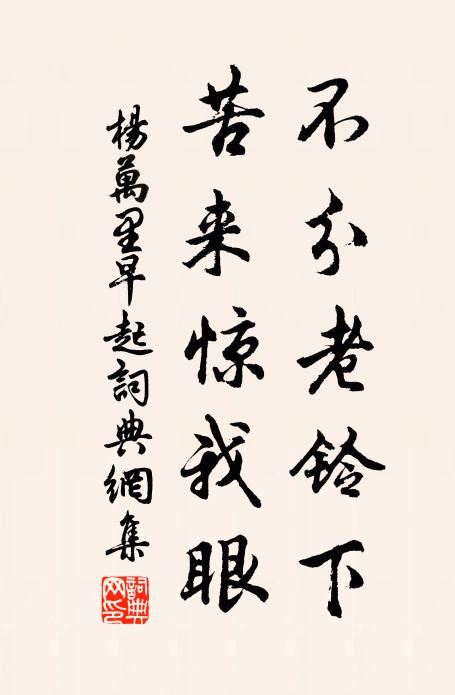 不分老铃下
苦来惊我眼
楊萬里早起詞典網集
詞典网印